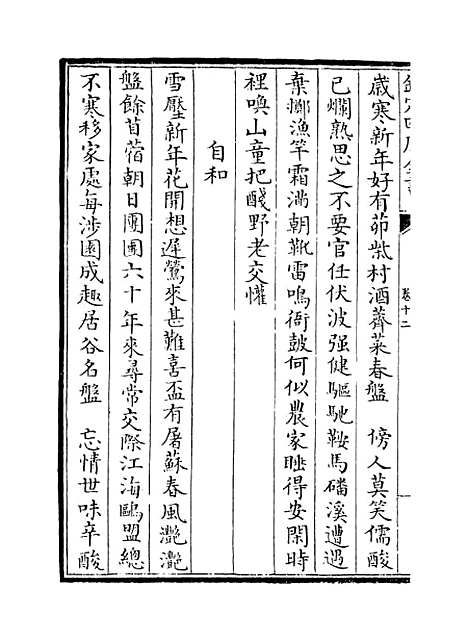 欽定四庫全書
卷十二
歲寒新年好有茆柴村酒薺菜春盤　傍人莫笑儒酸
已爛熟思之不要官任伏波强健驅馳鞍馬磻溪遭遇
棄擲漁竿霜滿朝靴雷鳴衙皷何似農家睡得安閑時
裡喚山童把醆野老交懽
自和
雪壓新年花開想遲鶯來甚難喜盃有屠蘇春風灔灔
盤餘苜蓿朝日團團六十年來尋常交際江海鷗盟總
不寒移家處每涉園成趣居谷名盤　忘情世味辛酸